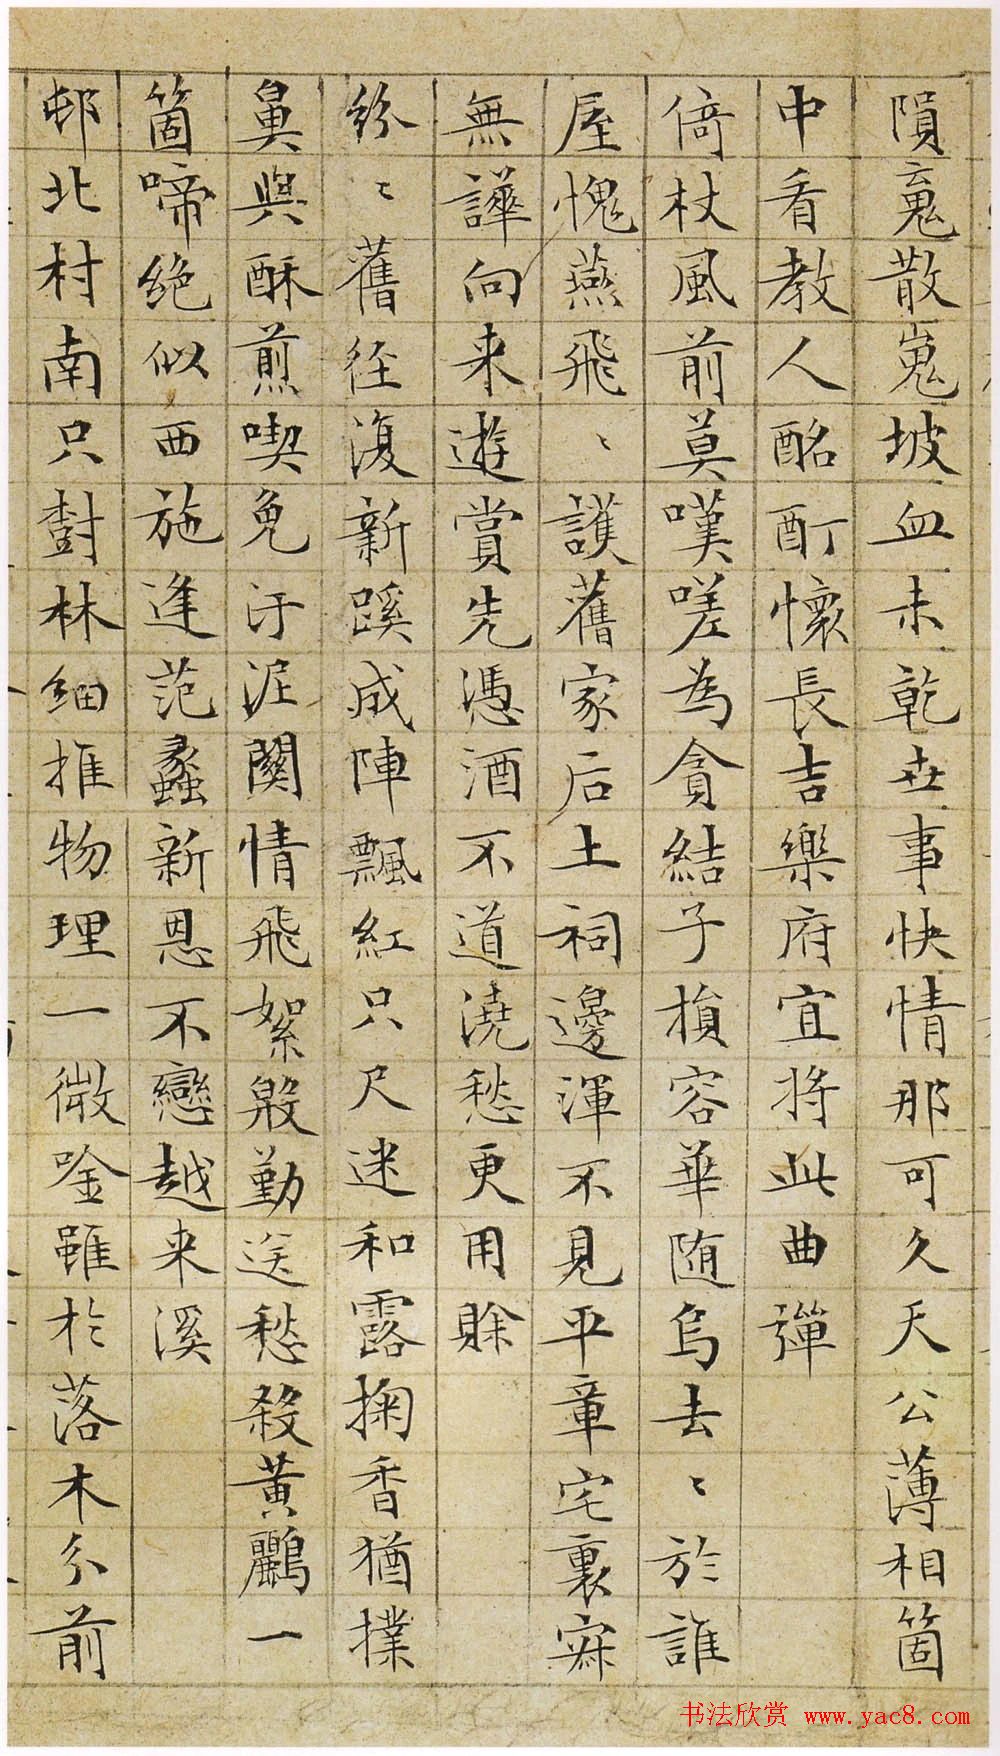 隕嵬散嵬坡血未乾世事快情那可久天公薄相箇
中看教人酩酊懷長吉樂府宜將此曲彈
倚杖風前莫嘆嗟為貪結子損容華随烏去〻於誰
屋愧燕飛〻護舊家后土祠邊渾不見平章宅裏寂
無譁向来遊賞先憑酒不道澆愁更用賖
紛〻舊徑復新蹊成陣飄紅只尺迷和露掬香猶撲
鼻與酥煎喫免汙泥關情飛絮慇勤送愁殺黃鸝一
箇啼絶似西施逢范蠡新恩不戀越来溪
邨北村南只樹林細推物理一微唫雖於落木分前
书法欣赏 www.yac8.com